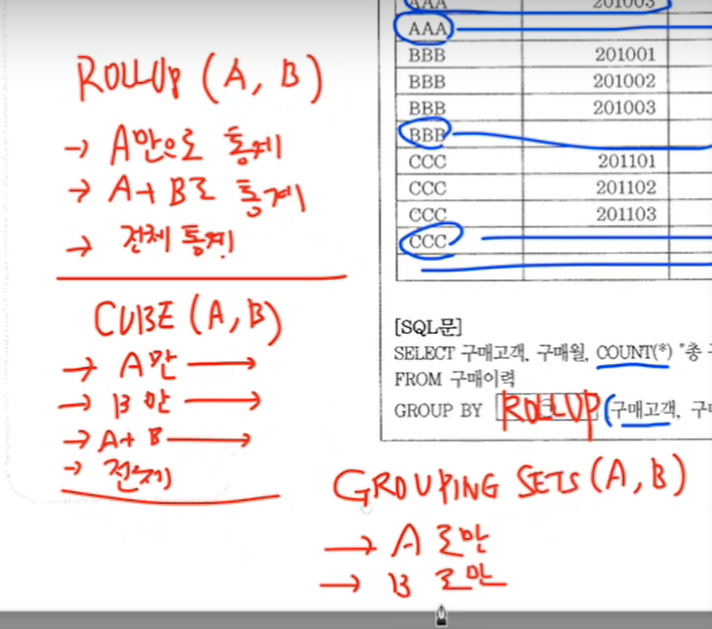 ROLLUP (A, B)
→ A만으로 통계
→ A+B로 통계
→ 전체 통계
CUBE (A, B)
→ A만 →
→ B만 →
→ A+B →
→ 전체
AAA 201003
AAA
BBB 201001
BBB 201002
BBB 201003
BBB
CCC 201101
CCC 201102
CCC 201103
CCC
[SQL문]
SELECT 구매고객, 구매월, COUNT(*) "총
FROM 구매이력
GROUP BY ROLLUP (구매고객, 구매
GROUPING SETS (A, B)
→ A로만
→ B로만